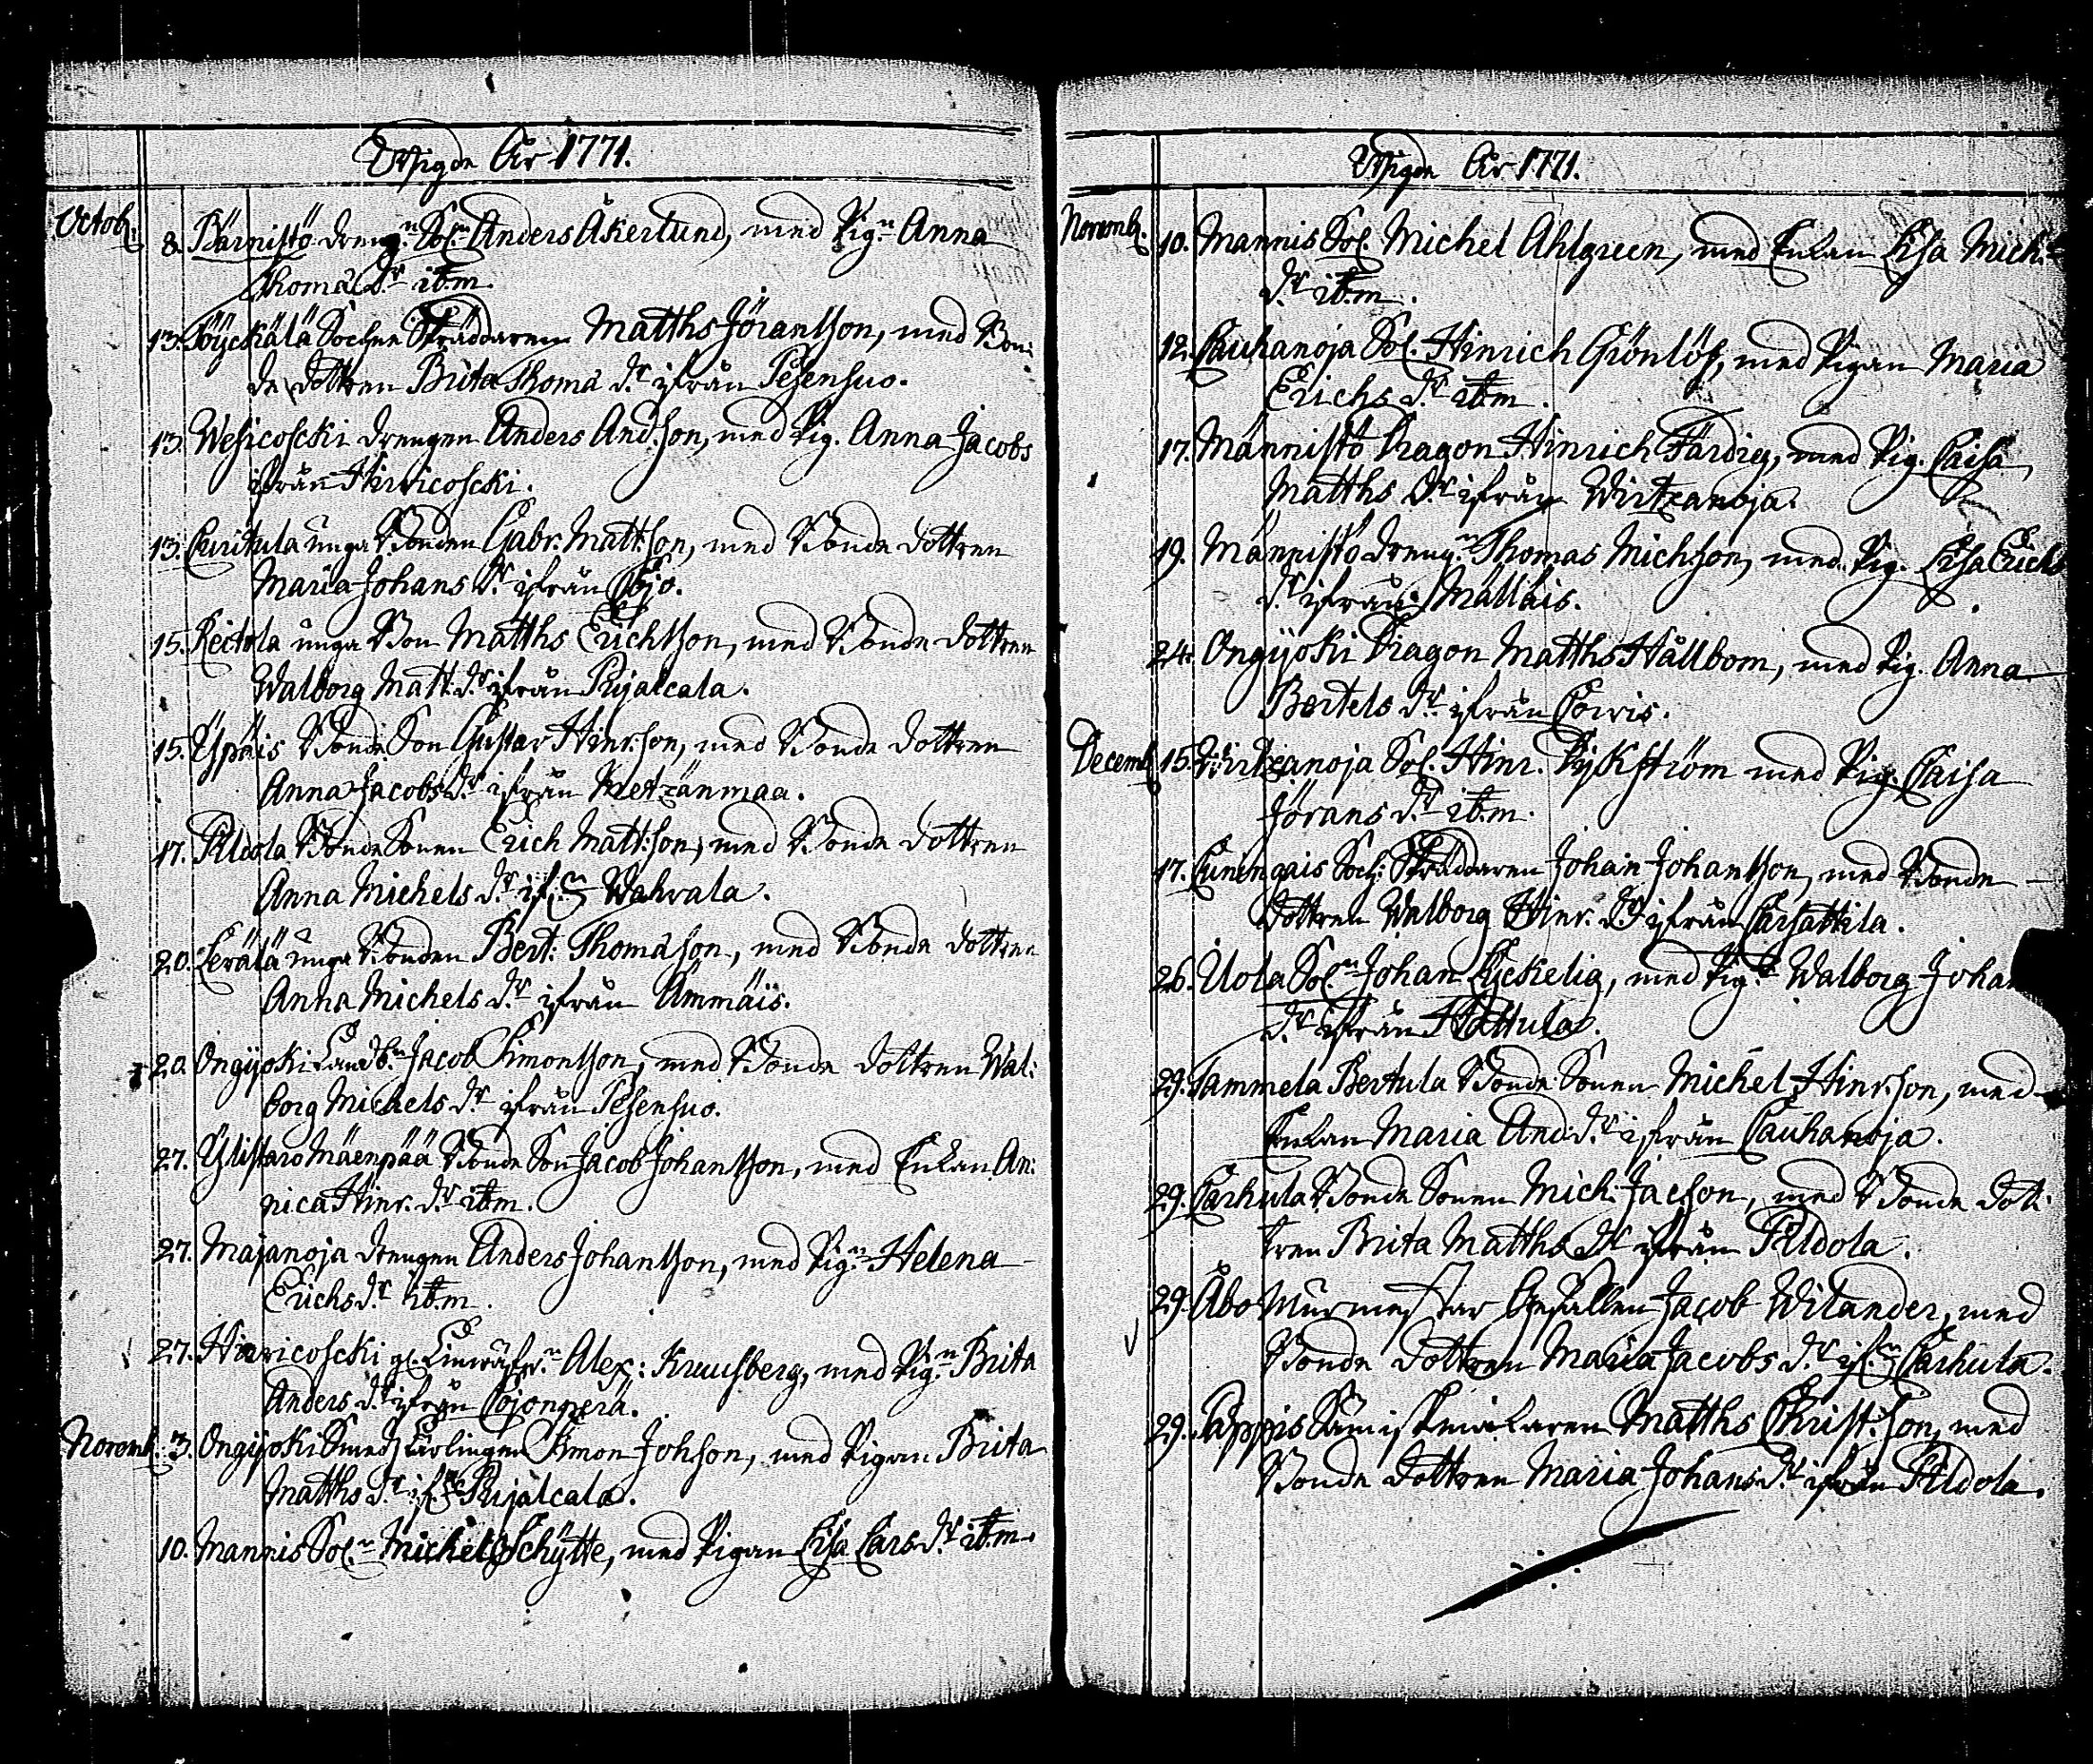 Wigde År 1771.
Octob. 8. Bärnistö dreng.n Sol.n Anders Åkerlund, med Pig.n Anna
Thomæ d.r ibm.
13. Löyckälä Sochne Skräddaren Matths Jörantson, med Bon:
de dottren Brita Thomæ d.r ifrån Pesensuo.
13. Wesicoscki drengen Anders And.son, med Pig. Anna Jacobs
ifrån Hirvicoscki.
13. Curitula unga Bonden Gabr. Matt.son, med Bonde dottren
Maria Johans d.r ifrån
15. Reckola unga Bon Matths Erichtson, med Bonde dottren
Walborg Matt. d.r ifrån Pujalcala.
15. Yspäis Bonde Son Gustav Hinr.son, med Bonde dottren
Anna Jacobs d.r ifrån Metzänmaa.
17. Pildola Bonde Sonen Erich Matt.son, med Bonde dottren
Anna Michels d.r if.n Wahvala.
20. Lerälä unga Bonden Bert: Thomæson, med Bonde dottren
Anna Michels d.r ifrån Ämmäis.
20. Ongijoki Landb.n Jacob Simontson, med Bonde dottren Wal:
borg Michels d.r ifrån Pesensuo.
27. Ylistaro Mäenpää Bonde Son Jacob Johantson, med Enkan An:
nica Hinr. d.r ibm.
27. Majanoja drengen Anders Johantson, med Pig.n Helena
Erichs d.r ibm.
27. Hirvicoscki gl. Alex: Kruusberg, med Pig.n Brita
Anders d.r ifrån Cojonperä.
Novemb. 3. Ongijoki Smeds Lärlingen Simon Johson, med Pigan Brita
Matths d.r if.n Pujalcala.
10. Mannis Sol.n Michel Schytte, med Pigan Lisa Lars d.r ibm.
Wigde År 1771.
Novemb. 10. Mannis Sol. Michel Ahlgreen, med Enkan Lisa Mich:
d.r ibm.
12. Cauhanoja Sol. Hinrich Grönlöf, med Pigan Maria
Erichs d.r ibm.
17. Männistö Dragon Hinrich Färdig, med Pig. Caisa
Matths d.r ifrån Wirtzanoja.
19. Männistö dreng.n Thomas Michson, med Pig. Lisa Erichs
d.r ifrån Mälläis.
24. Ongijoki Dragon Matths Hällbom, med Pig. Anna
Bertels d.r ifrån Corvis.
Decemb. 15. Wirtzanoja Sol. Hinr. Dyckström med Pig. Caisa
Jörans d.r ibm.
17. Cuningais Soch: Skräddaren Johan Johantson, med Bonde
dottren Walborg Hinr. d.r ifrån Carsattila.
26. Uola Sol.n Johan Lyckelig, med Pig.n Walborg Johan
d.r ifrån Hattula.
29. Tammela Bertula Bonde Sonen Michel Hinr.son, med
Enkan Maria And. d.r ifrån Cauhanoja.
29. Carhula Bonde Sonen Mich. Jacson, med Bonde dott:
tren Brita Matths d.r ifrån Pildola.
29. Åbo Murmestar Gesällen Jacob Wilander, med
Bonde dottren Maria Jacobs d.r if.n Carhula.
29. Pappis Sämiskmakaren Matths Christ.son, med
Bonde dottren Maria Johans d.r ifrån Pildola.